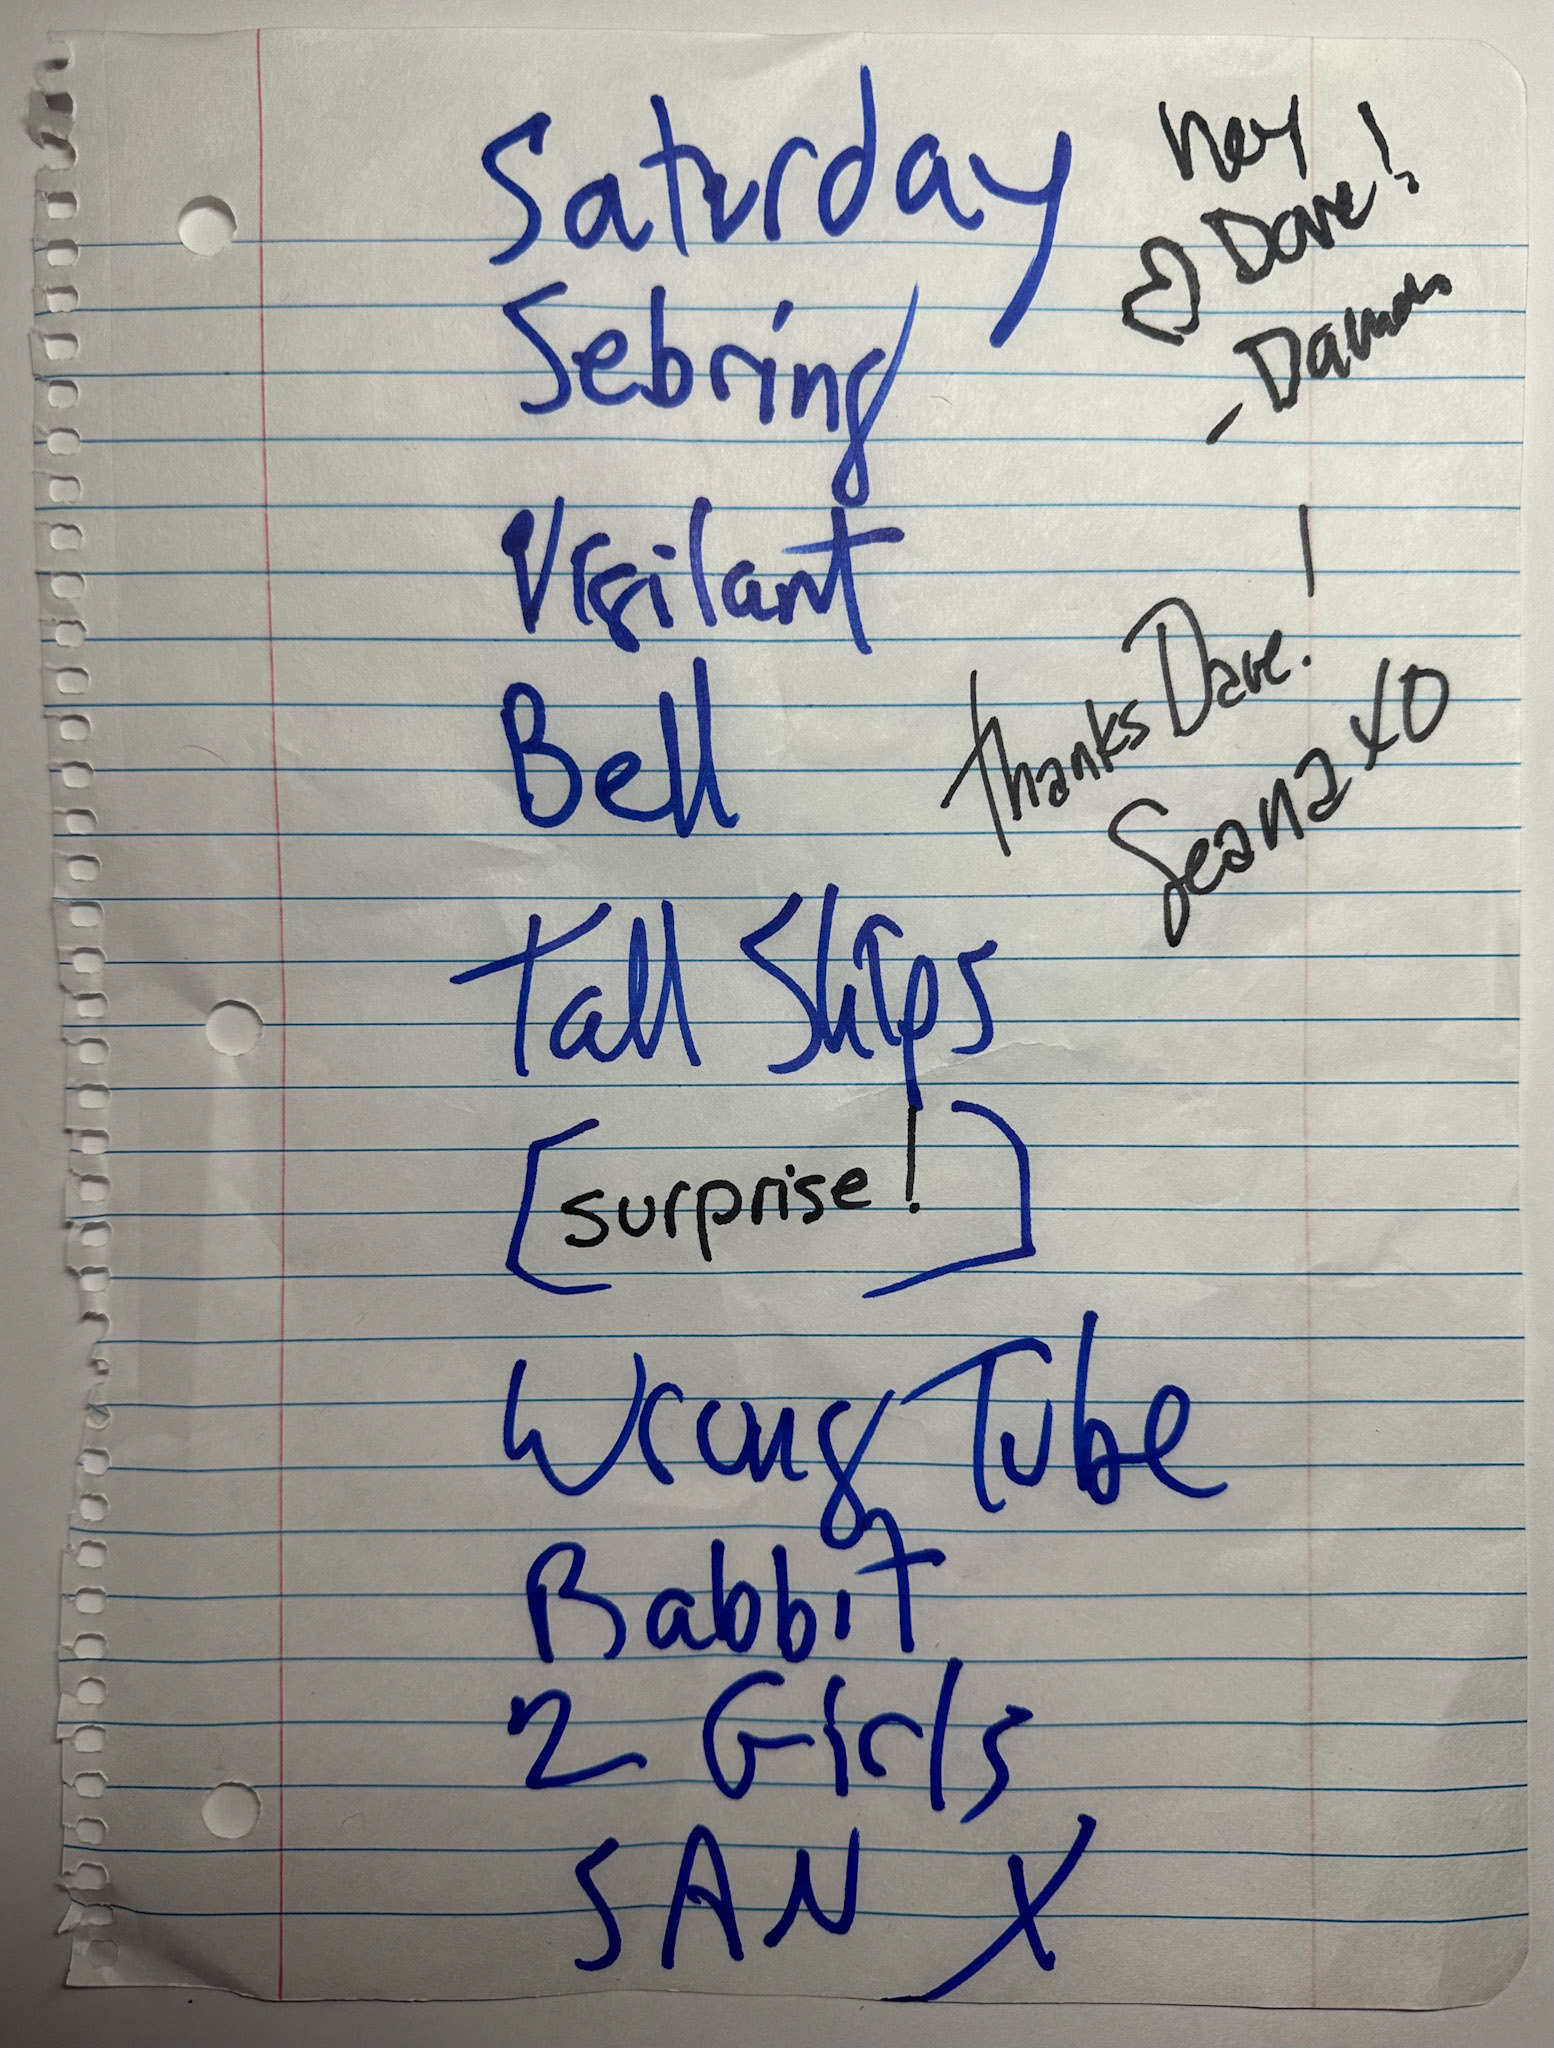 Saturday
Sebring
Vigilant
Bell
Tall Ships
[surprise!]
Wrong Tube
Rabbit
2 Girls
SAN X
hey
Dave!
♡
- Damon
Thanks Dave!
Seana xo